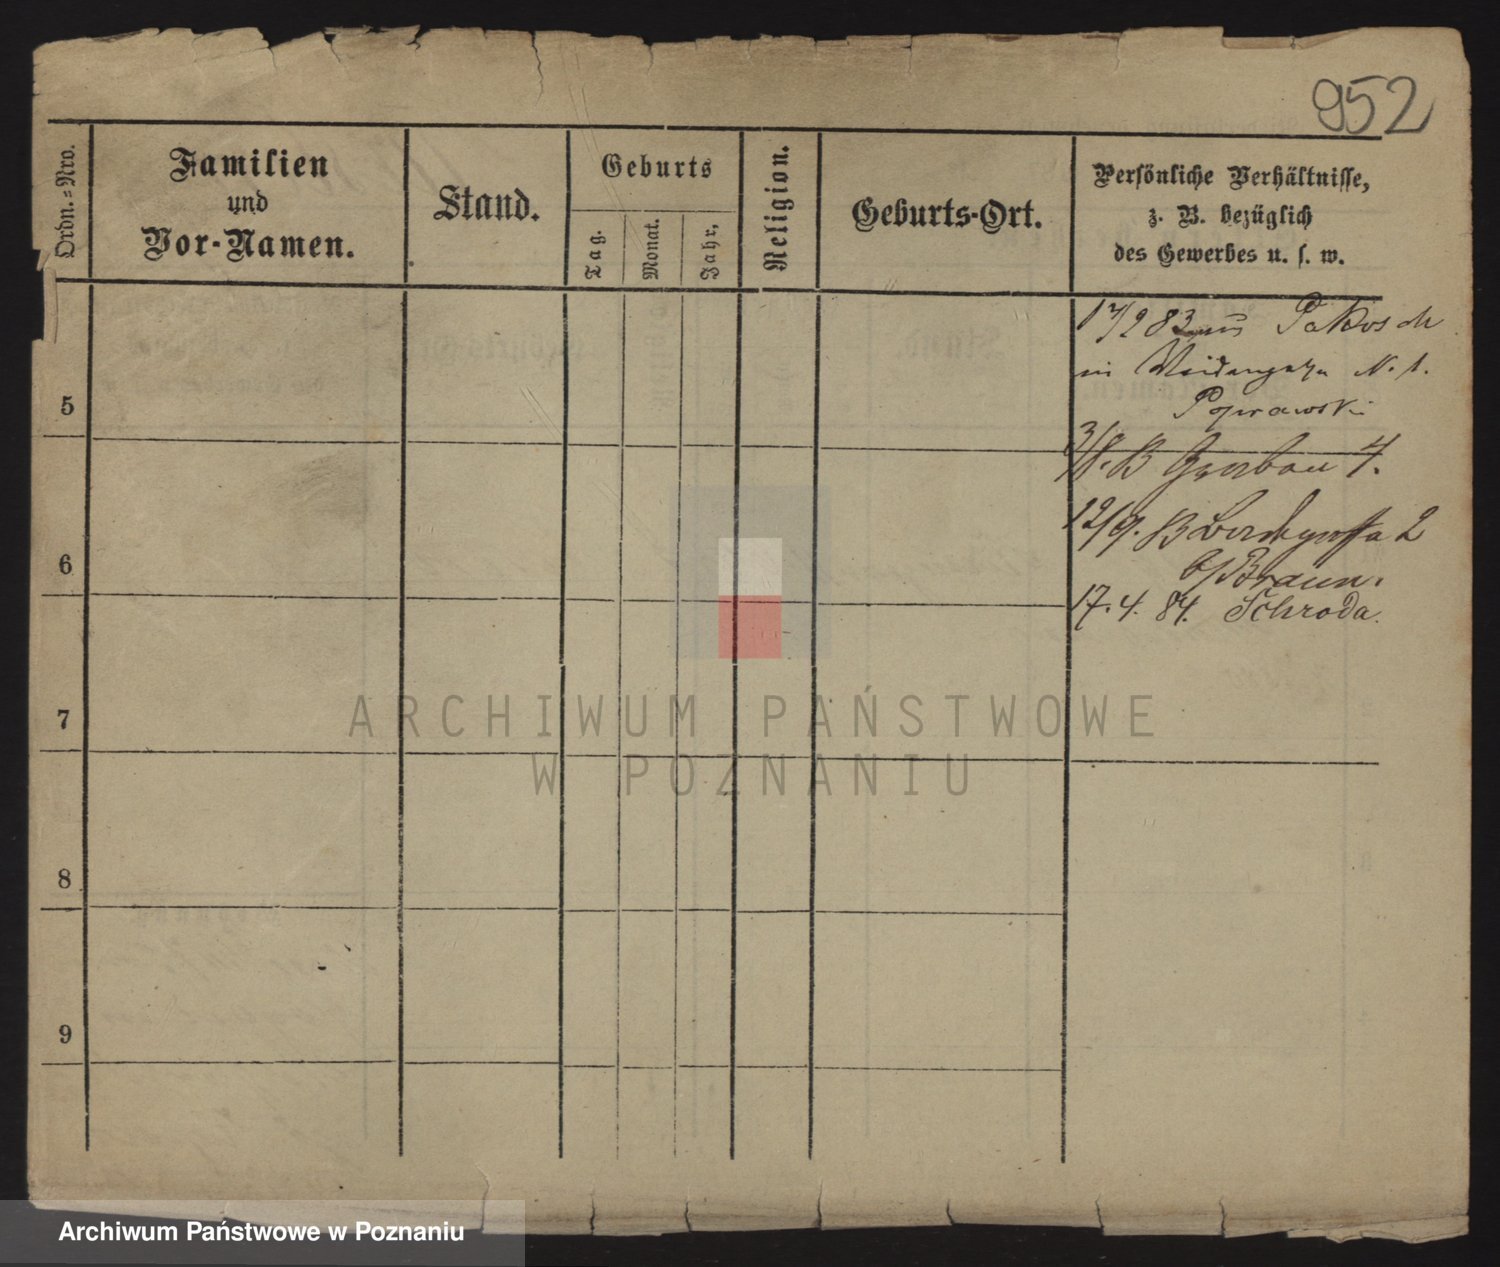 952
Ordn.-Nro.
Familien
und
Vor-Namen.
Stand.
Geburts
Tag.
Monat.
Jahr,
Religion.
Geburts-Ort.
Persönliche Verhältnisse,
z. B. bezüglich
des Gewerbes u. s. w.
17/2 83 aus Pakosch
in N. 1.
Poprawski
3/8. B Gerbau 4.
12/9. B 2
b/Braun.
17. 4. 84. Schroda.
5
6
7
8
9
ARCHIWUM PAŃSTWOWE
W POZNANIU
Archiwum Państwowe w Poznaniu